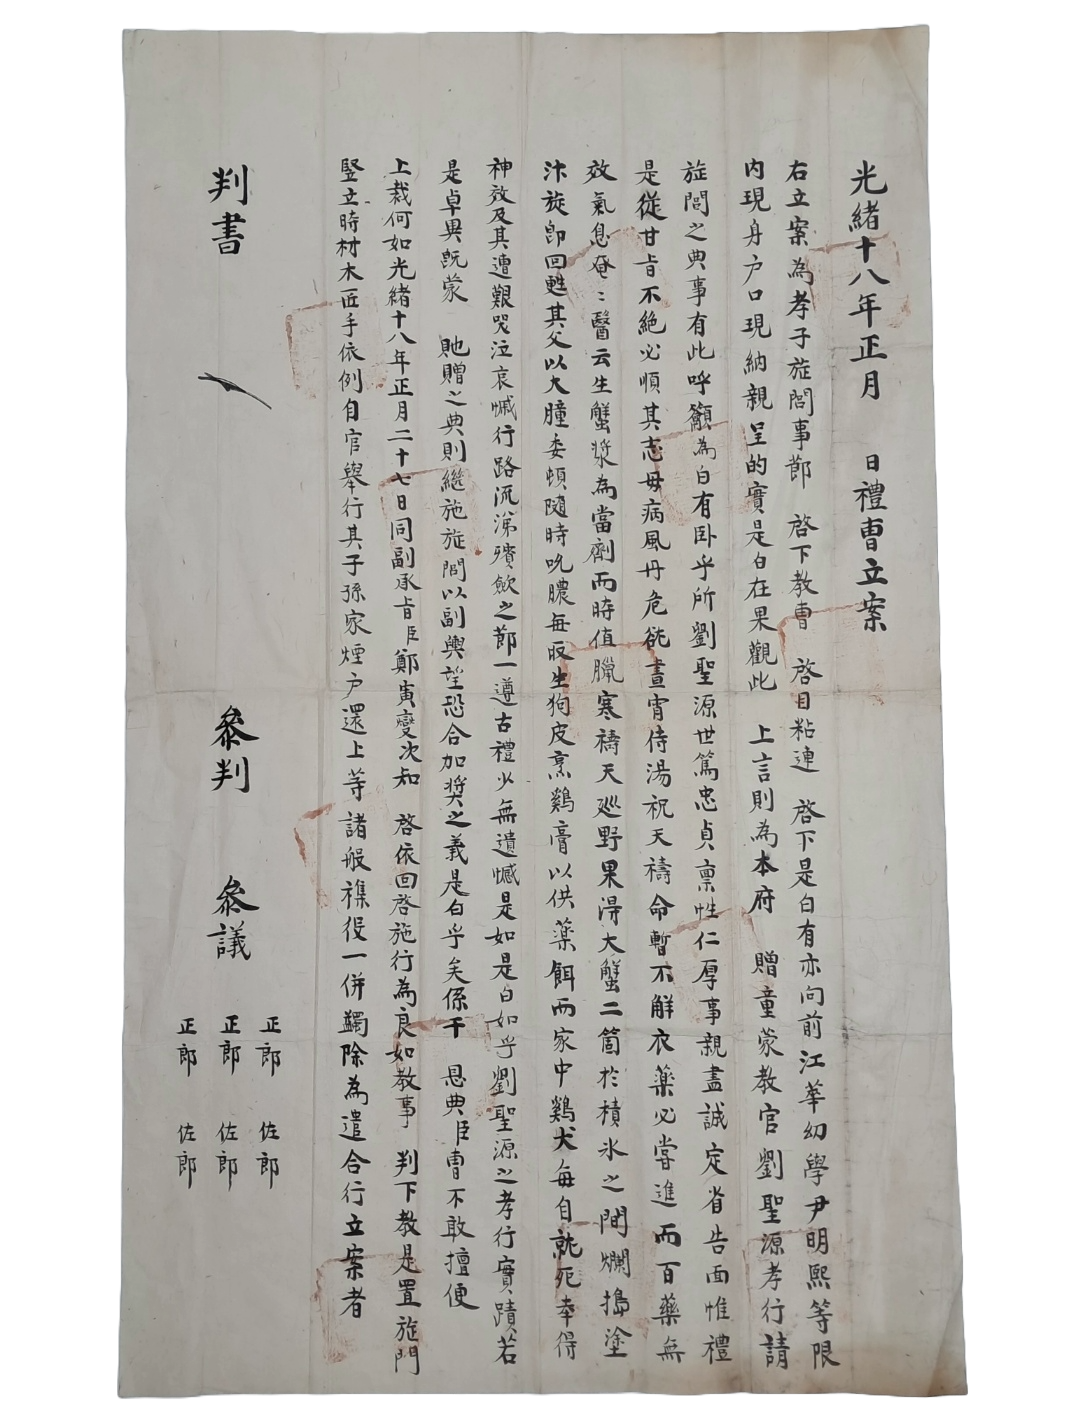 光緒十八年正月 日禮曹立案
右立案為孝子旌閭事節 啓下教曹 啓目粘連 啓下是白有亦向前江華幼學尹明熙等限
內現身户口現納親呈的實是白在果觀此 上言則為本府 贈童蒙教官劉聖源孝行請
旌閭之典事有此呼籲為白有臥乎所劉聖源世篤忠貞稟性仁厚事親盡誠定省告面惟禮
是從甘旨不絕必順其志毋病風丹危㞃晝宵侍湯祝天禱命暫不解衣藥必甞進而百藥無
效氣息奄〻醫云生蟹漿為當劑而時值臘寒禱天廵野果淂大蟹二箇於積氷之間爛搗塗
汴旋卽回甦其父以大腫委頓隨時吮膿每取生狗皮烹鷄膏以供藥餌而家中鷄犬每自就死幸得
神效及其遭艱哭泣哀慽行路流涕殯歛之節一遵古禮少無遺憾是如是白如乎劉聖源之孝行實蹟若
是卓異旣蒙 貤贈之典則繼施旌閭以副輿望恐合加奬之義是白乎矣係干 恩典臣曹不敢擅便
上裁何如光緒十八年正月二十七日同副承旨臣鄭寅燮次知 啓依回啓施行為良如教事 判下教是置旌門
竪立時材木匠手依例自官舉行其子孫家烟户還上等諸般襍役一併蠲除為遣合行立案者
判書
叅判
叅議
正郎 佐郎
正郎 佐郎
正郎 佐郎